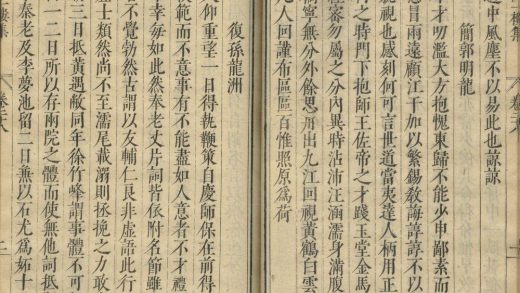 途中風塵不以易此也諒諒
簡郭明龍
才叨濫大方抱愧東歸不能少申鄙素而
冒雨遠顧江干加以繁錫敎誨諄諄不以
視也感刻何可言世道當夷達人柄用正
之時門下抱師王佐帝之才踐玉堂金馬
蕃勿屬之分內異時沾沛汪濊濡身滿腹
寧無分外餘思出九江回視黃鶴白雲
人回謹布區區百惟照原爲荷
復孫龍洲
仰重望一日得執鞭策自慶師保在前得
範而不意事有不能盡如人意者不才禮
幸每如此然奉老丈片詞皆依附名節雖
不覺勃然古謂以友輔仁良非虛語此行
士類然尚不至濡尾載則拯挽之力敢
三日抵黃遇敝同年徐竹峰謂事體不可
二日所以存兩院之體而使無他詞抵
秦老及李夢池留二日無以石尤爲妬十